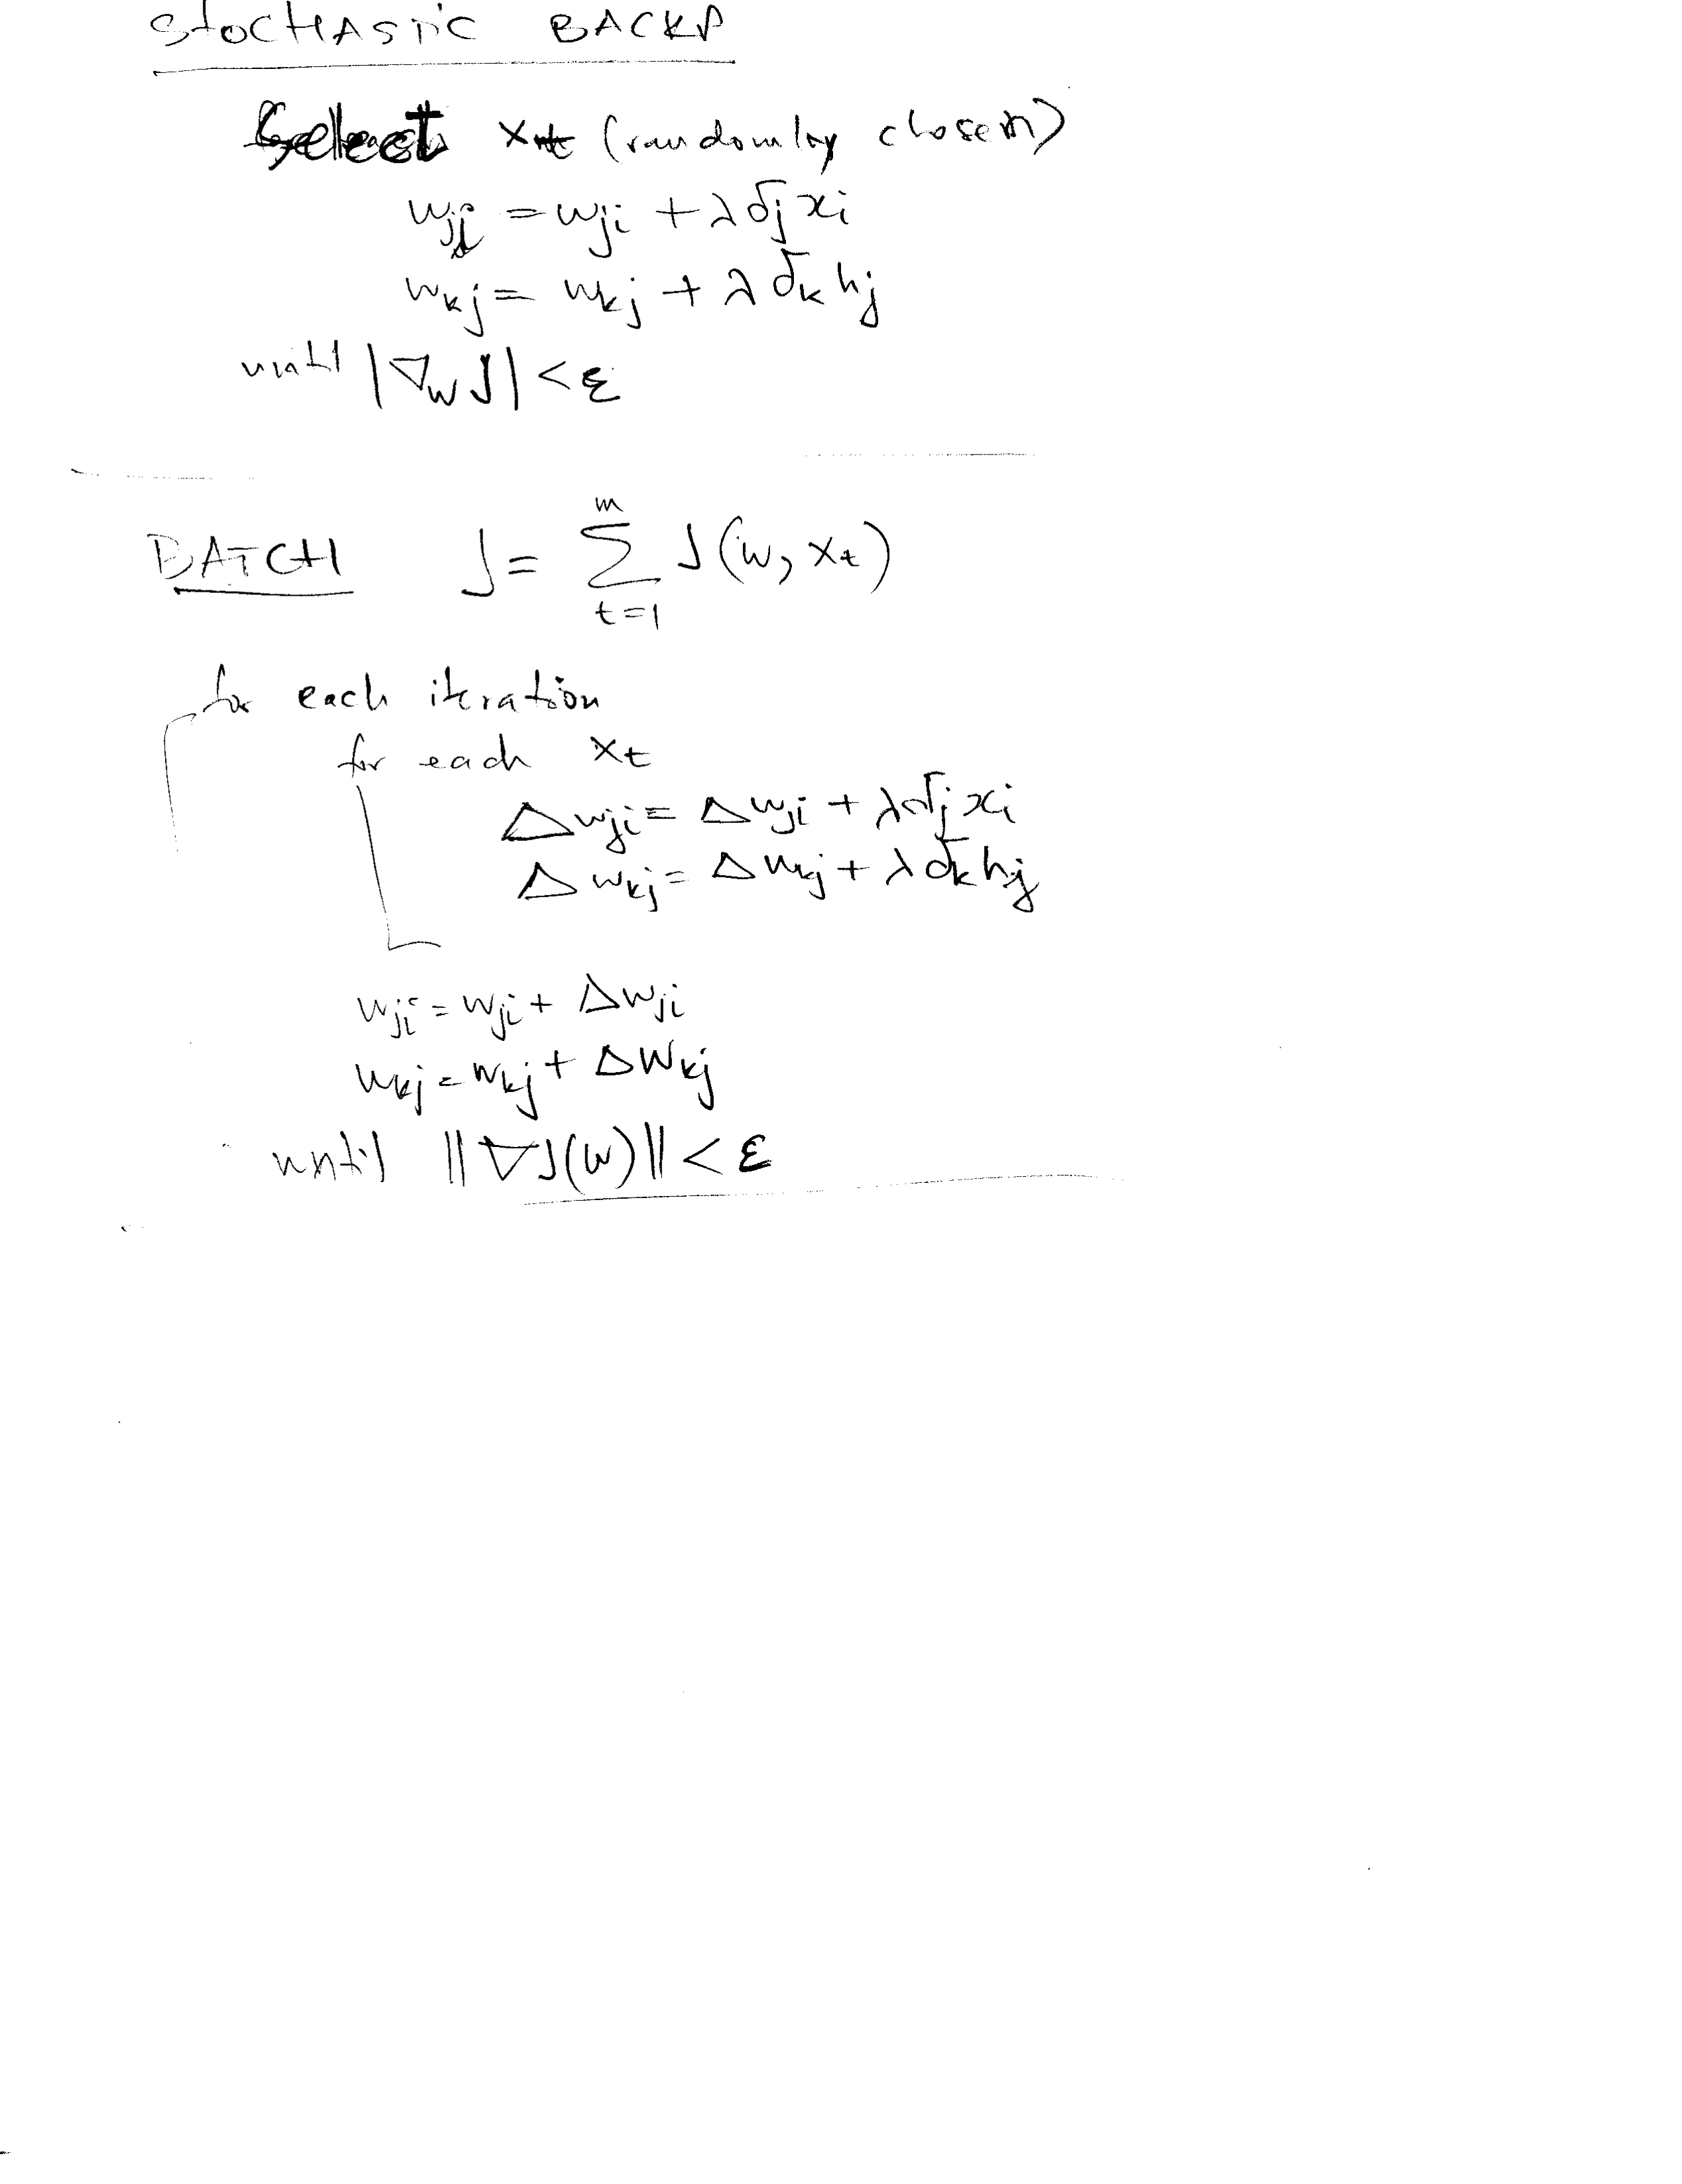 STOCHASTIC BACKP
Select xt (randomly chosem)
wji = wji + λ δj xi
wkj = wkj + λ δk hj
until |∇w J| < ε
BATCH J = Σ_{t=1}^{m} J(w, xt)
for each iteration
for each xt
Δwji = Δwji + λ δj xi
Δwkj = Δwkj + λ δk hj
wji = wji + Δwji
wkj = wkj + Δwkj
until ||∇J(w)|| < ε